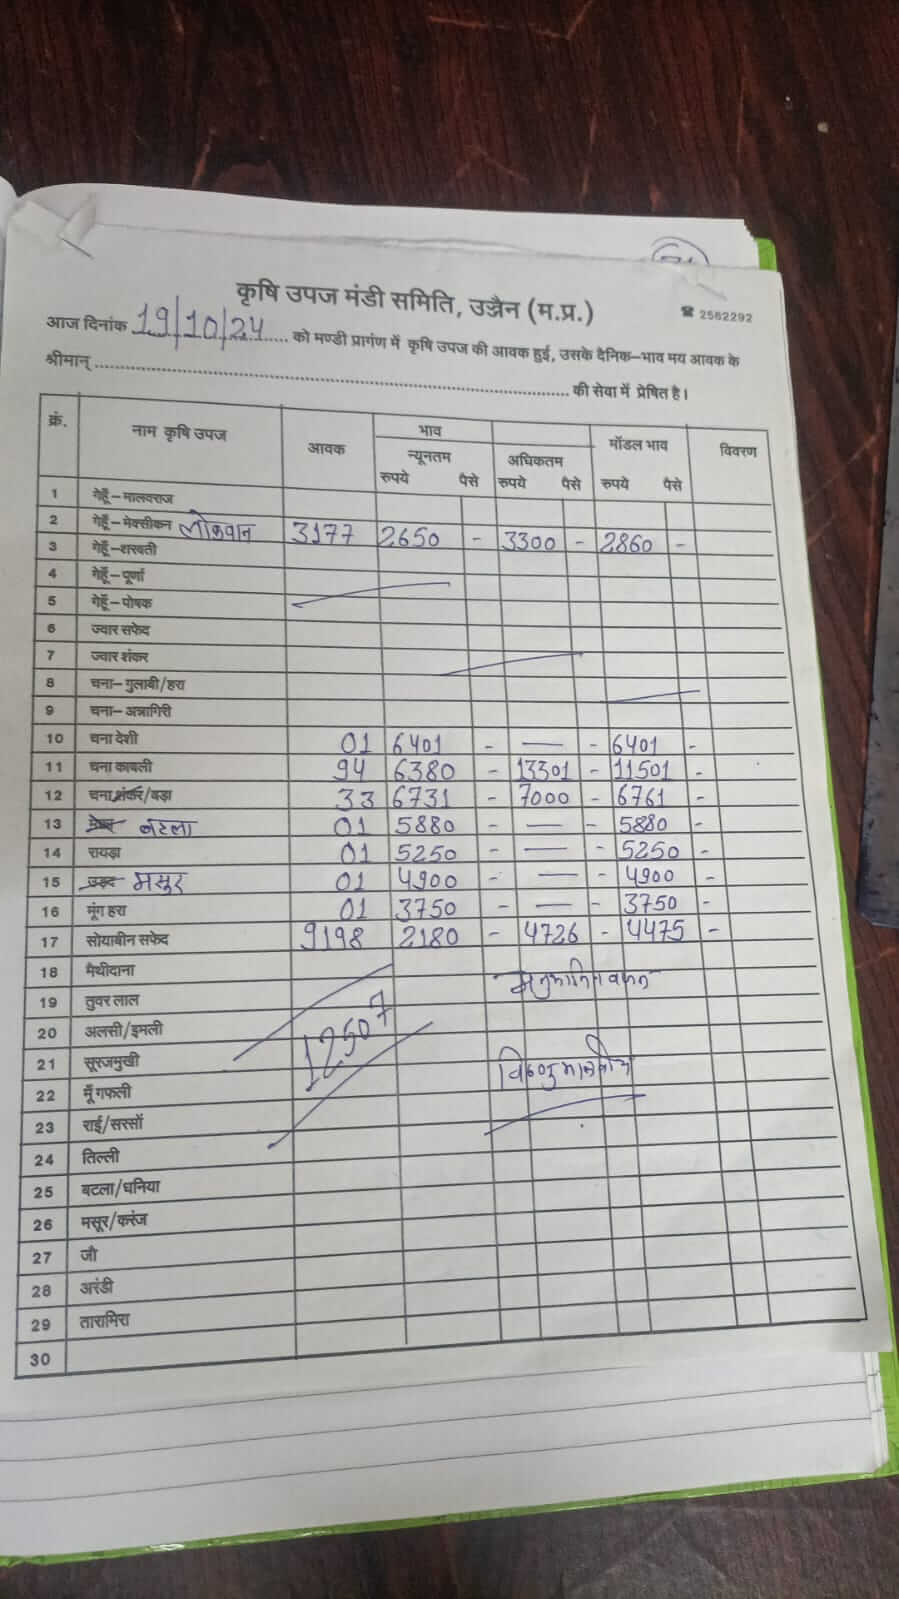 कृषि उपज मंडी समिति, उज्जैन (म.प्र.)
☎ 2562292
आज दिनांक 19/10/24 को मण्डी प्रागंण में कृषि उपज की आवक हुई, उसके दैनिक-भाव मय आवक के
श्रीमान् ........ की सेवा में प्रेषित है।
क्रं. नाम कृषि उपज आवक भाव मॉडल भाव विवरण
न्यूनतम अधिकतम
रुपये पैसे रुपये पैसे रुपये पैसे
1 गेहूँ-मालवराज
2 गेहूँ-मेक्सीकन लोकवान 3177 2650 - 3300 - 2860 -
3 गेहूँ-शरबती
4 गेहूँ-पूर्णा
5 गेहूँ-पोषक
6 ज्वार सफेद
7 ज्वार शंकर
8 चना-गुलाबी/हरा
9 चना-अन्नागिरी
10 चना देशी 01 6401 - — - 6401 -
11 चना काबली 94 6380 - 13301 - 11501 -
12 चना शंकर/बड़ा 33 6731 - 7000 - 6761 -
13 बटला 01 5880 - — - 5880 -
14 रायड़ा 01 5250 - — - 5250 -
15 उड़द मसुर 01 4900 - — - 4900 -
16 मूंग हरा 01 3750 - — - 3750 -
17 सोयाबीन सफेद 9198 2180 - 4726 - 4475 -
18 मैथीदाना
19 तुवर लाल
20 अलसी/इमली
12507
21 सूरजमुखी
22 मूँगफली
23 राई/सरसों
24 तिल्ली
25 बटला/धनिया
26 मसूर/करंज
27 जौ
28 अरंडी
29 तारामिरा
30